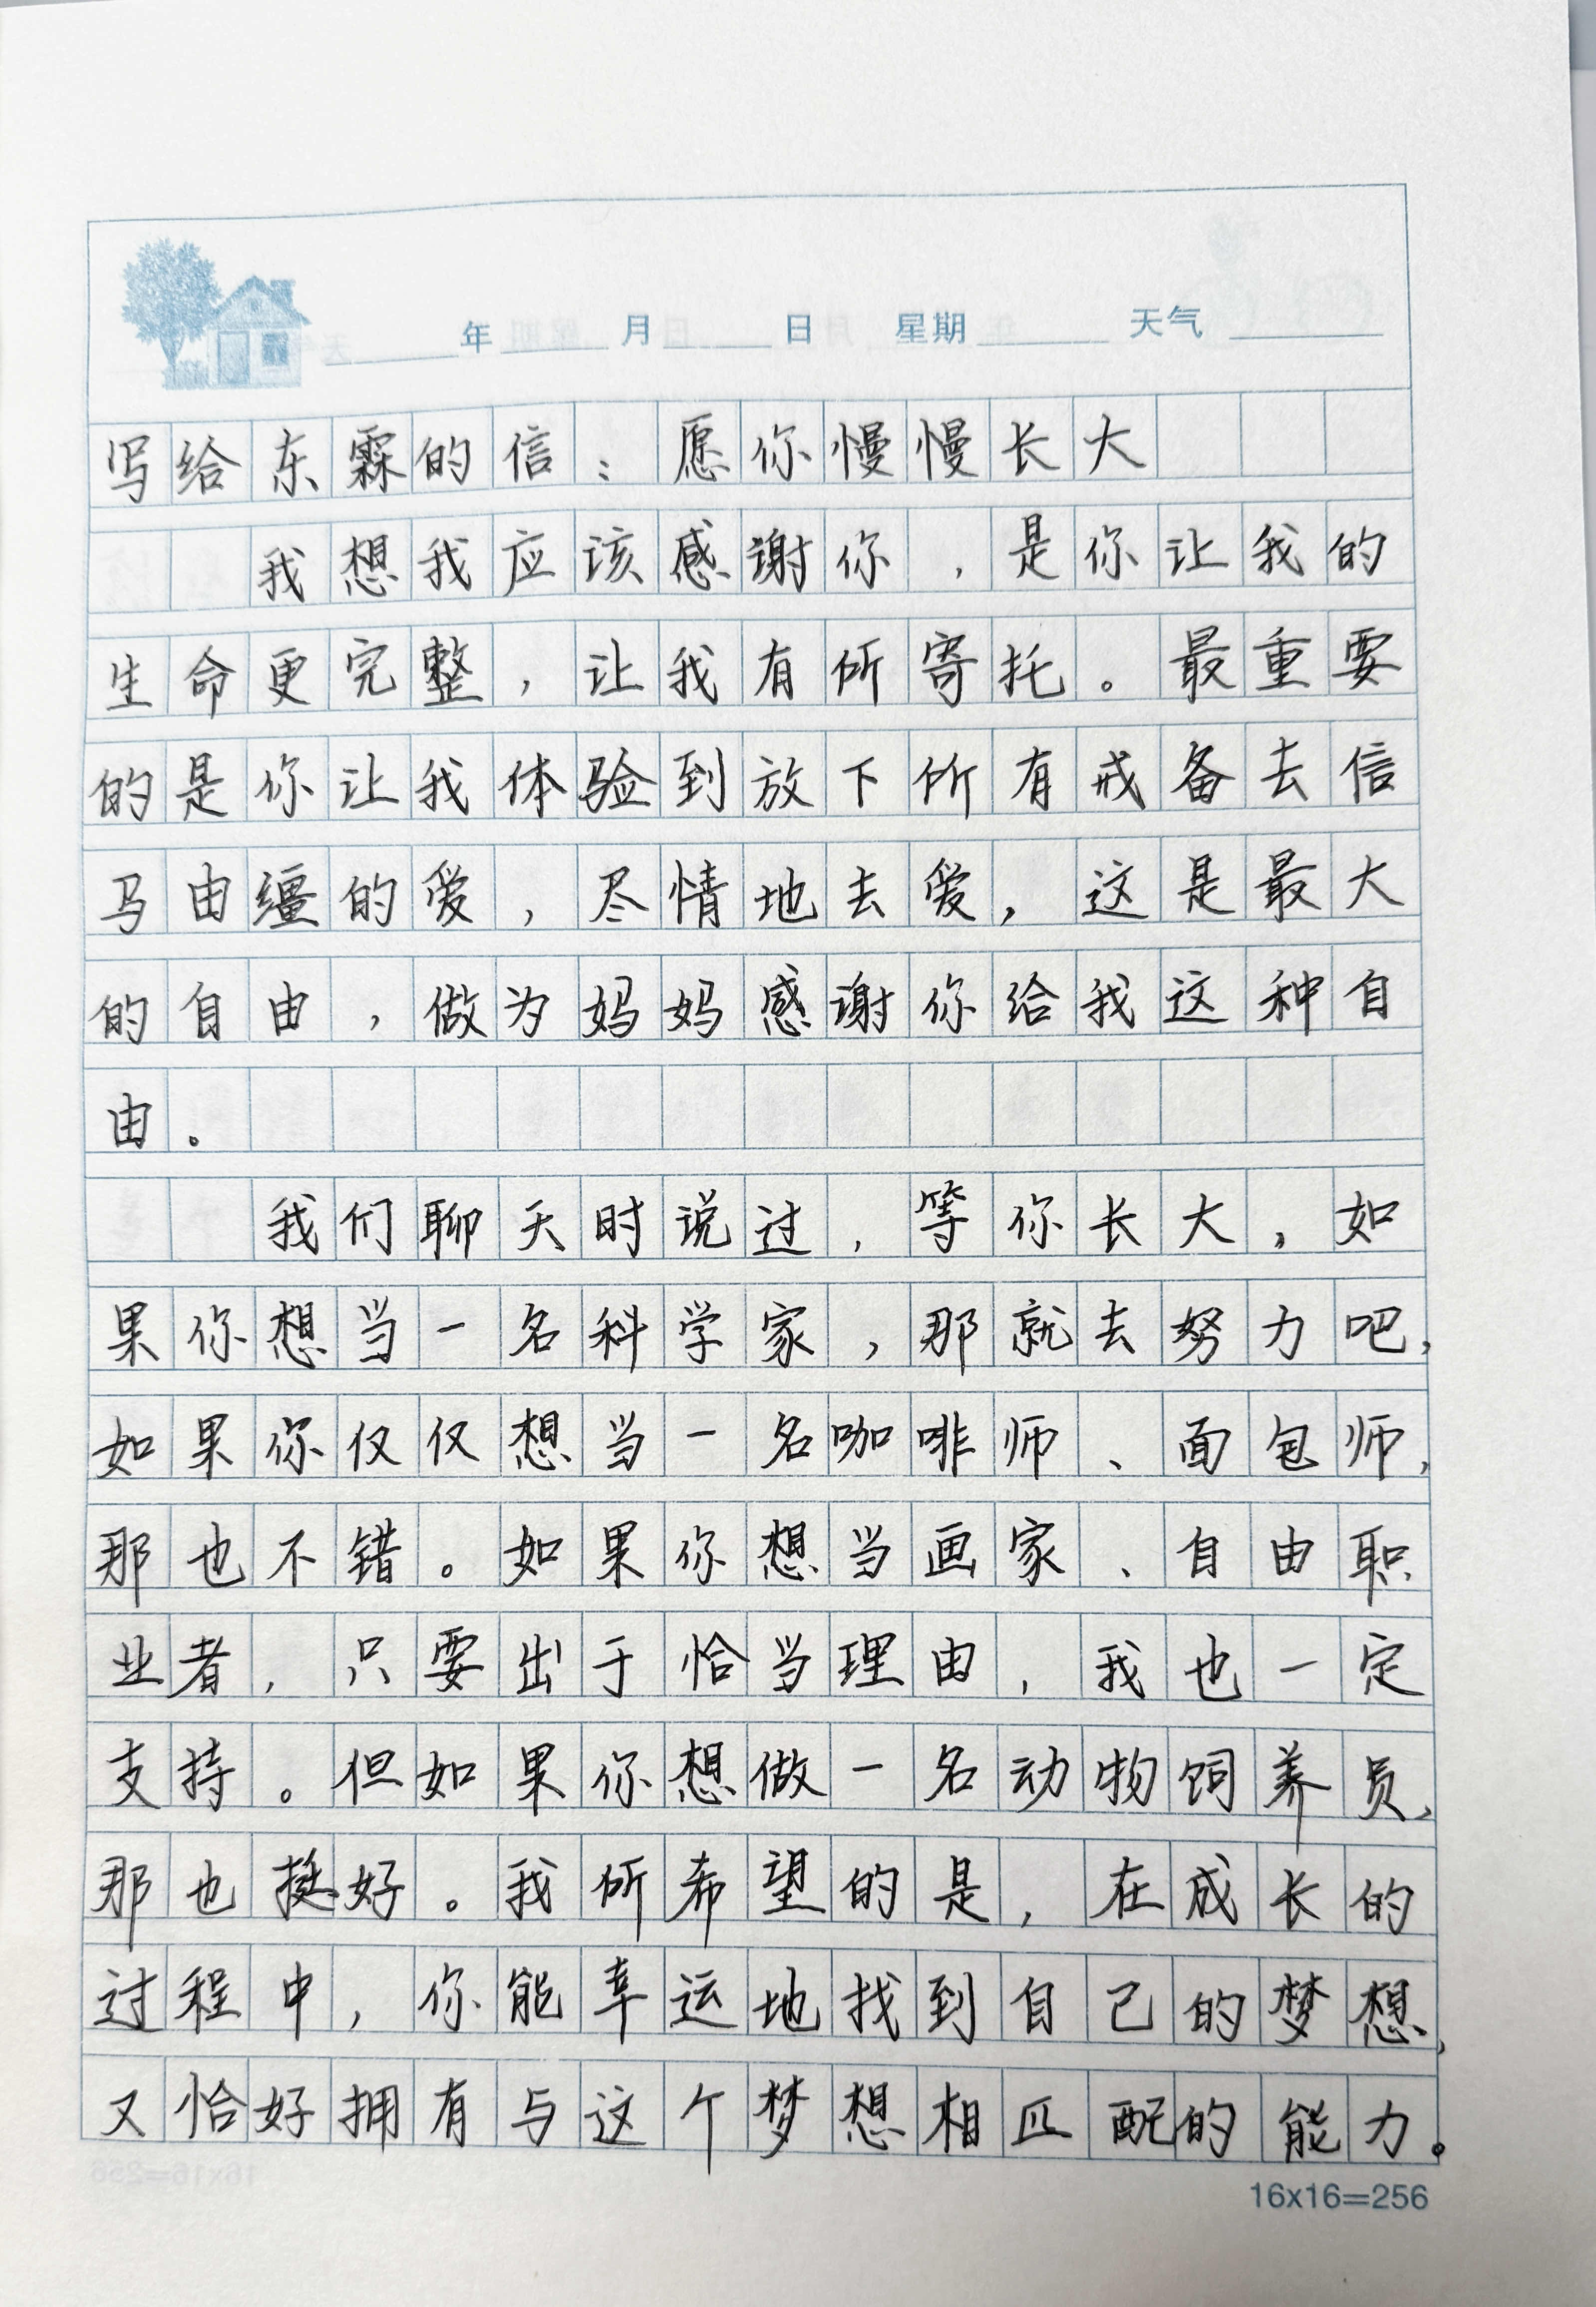 年 月 日 星期 天气
写给东霖的信：愿你慢慢长大
我想我应该感谢你，是你让我的
生命更完整，让我有所寄托。最重要
的是你让我体验到放下所有戒备去信
马由缰的爱，尽情地去爱，这是最大
的自由，做为妈妈感谢你给我这种自
由。
我们聊天时说过，等你长大，如
果你想当一名科学家，那就去努力吧，
如果你仅仅想当一名咖啡师、面包师，
那也不错。如果你想当画家、自由职
业者，只要出于恰当理由，我也一定
支持。但如果你想做一名动物饲养员，
那也挺好。我所希望的是，在成长的
过程中，你能幸运地找到自己的梦想，
又恰好拥有与这个梦想相匹配的能力。
16x16=256